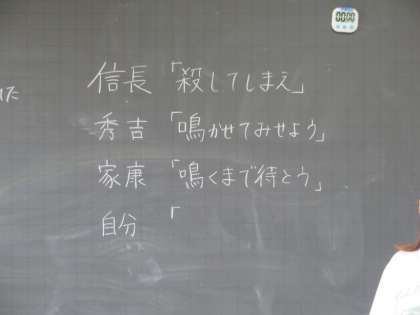 00:00
信長「殺してしまえ」
秀吉「鳴かせてみせよう」
家康「鳴くまで待とう」
自分「